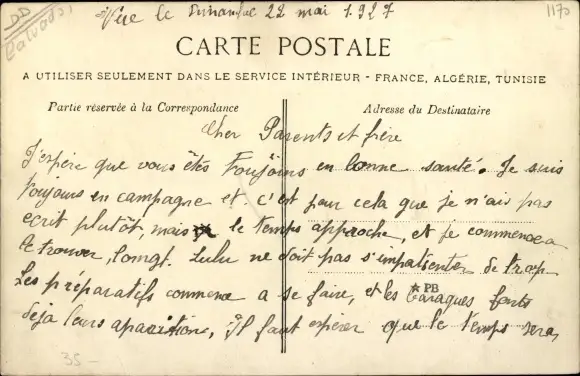 DD
Calvados
Vire le Dimanche 22 mai 1927
1170
CARTE POSTALE
A UTILISER SEULEMENT DANS LE SERVICE INTÉRIEUR - FRANCE, ALGÉRIE, TUNISIE
Partie réservée à la Correspondance
Adresse du Destinataire
Cher Parents et frère
J'espère que vous êtes toujours en bonne santé. Je suis
toujours en campagne et c'est pour cela que je n'ais pas
ecrit plutôt, mais le temps approche, et je commence a
le trouver, loingt. Lulu ne doit pas s'impatienter de trop
Les préparatifs commence a se faire, et les baraques font
PB
deja leurs aparitions, il faut espérer que le temps sera,
35 -